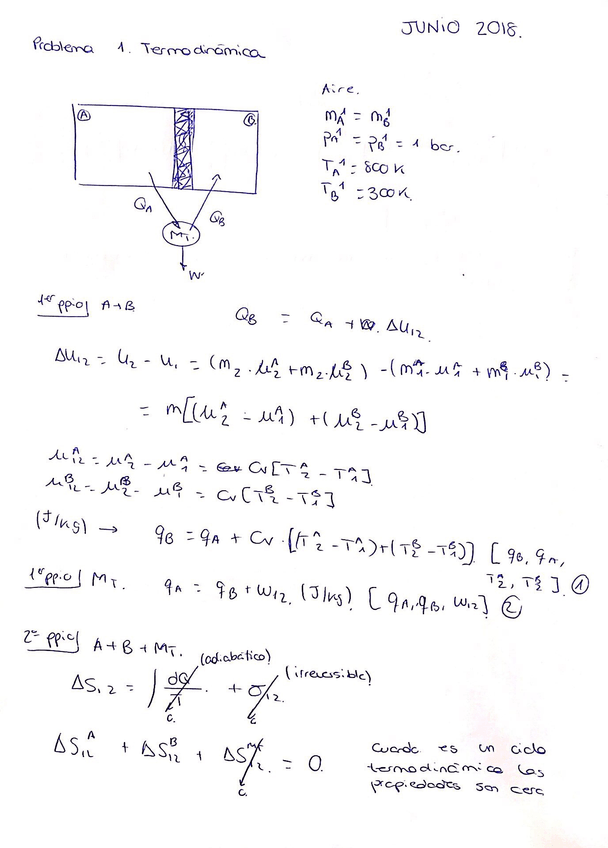 JUNIO 2018.
Problema 1. Termodinámica
Aire.
m_A^1 = m_B^1
p_A^1 = p_B^1 = 1 bar.
T_A^1 = 800 K
T_B^1 = 300 K.
A
B
Q_A
Q_B
M_T.
W
1er ppio| A+B
Q_B = Q_A + ΔU_12.
ΔU_12 = U_2 - U_1 = (m_2 · μ_2^A + m_2 · μ_2^B) - (m_1^A · μ_1^A + m_1^B · μ_1^B) =
= m[(μ_2^A - μ_1^A) + (μ_2^B - μ_1^B)]
μ_12^A = μ_2^A - μ_1^A = Cv[T_2^A - T_1^A]
μ_12^B = μ_2^B - μ_1^B = Cv[T_2^B - T_1^B]
(J/kg) → q_B = q_A + Cv · [(T_2^A - T_1^A) + (T_2^B - T_1^B)] [q_B, q_A,
T_2^A, T_2^B] ①
1er ppio| M_T. q_A = q_B + W_12. (J/kg) [q_A, q_B, W_12] ②
2º ppio| A + B + M_T.
(adiabático)
(irreversible)
ΔS_12 = ∫ dQ/T + σ_12.
ΔS_12^A + ΔS_12^B + ΔS_12^MT = 0.
Cuando es un ciclo
termodinámico las
propiedades son cero